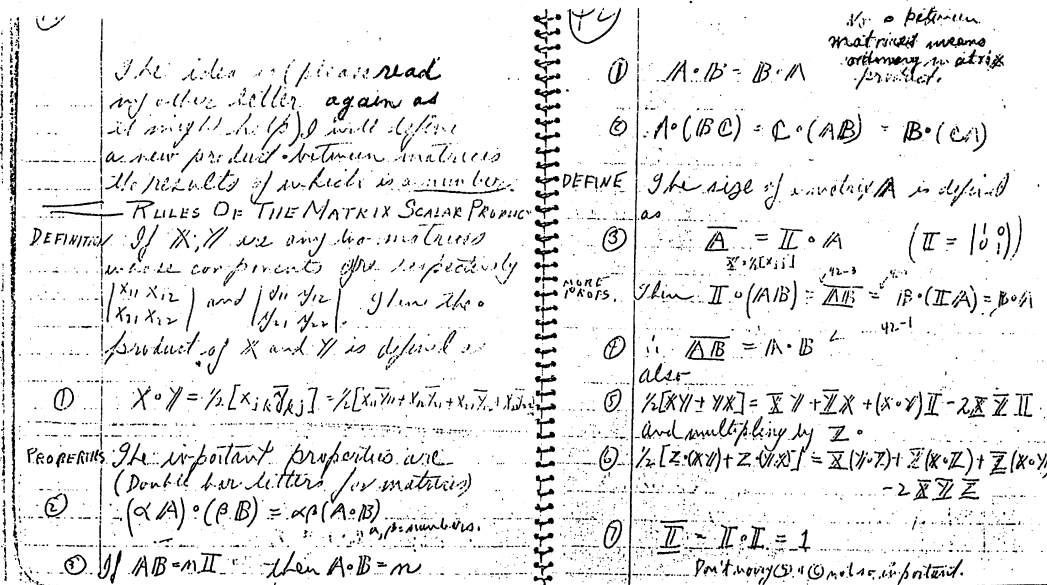 The idea is (please read
my other letter again as
it might help) I will define
a new product • between matrices
the results of which is a number.
RULES OF THE MATRIX SCALAR PRODUCT
DEFINITION If X, Y are any two matrices
whose components are respectively
|x₁₁ x₁₂| and |y₁₁ y₁₂|. Then the •
|x₂₁ x₂₂| |y₂₁ y₂₂|
product of X and Y is defined as
① X∘Y = ½[x_jk y_kj] = ½[x₁₁y₁₁ + x₁₂y₂₁ + x₂₁y₁₂ + x₂₂y₂₂
PROPERTIES The important properties are
(Double bar letters for matrices)
② (α𝔸)∘(β𝔹) = αβ(𝔸∘𝔹)
α, β = numbers.
③ If 𝔸𝔹 = n𝕀 then 𝔸∘𝔹 = n
No ∘ between
matrices means
ordinary matrix
product.
① 𝔸∘𝔹 = 𝔹∘𝔸
② 𝔸∘(𝔹ℂ) = ℂ∘(𝔸𝔹) = 𝔹∘(ℂ𝔸)
DEFINE The size of a matrix 𝔸 is defined
as
③ 𝔸̅ = 𝕀∘𝔸 (𝕀 = |1 0 0 1|)
X̅ = ½[x_jj]
MORE PROPS. Then 𝕀∘(𝔸𝔹) = 𝔸𝔹̅ = 𝔹∘(𝕀𝔸) = 𝔹∘𝔸
42-3
42-1
④ ∴ 𝔸𝔹̅ = 𝔸∘𝔹
also
⑤ ½[XY + YX] = X̅Y + Y̅X + (X∘Y)𝕀 − 2X̅ Y̅ 𝕀
and multiplying by Z∘
⑥ ½[Z∘(XY) + Z∘(YX)] = X̅(Y∘Z) + Y̅(X∘Z) + Z̅(X∘Y)
−2X̅ Y̅ Z̅
⑦ 𝕀̅ = 𝕀∘𝕀 = 1
Don't worry (5) & (6) not so important.